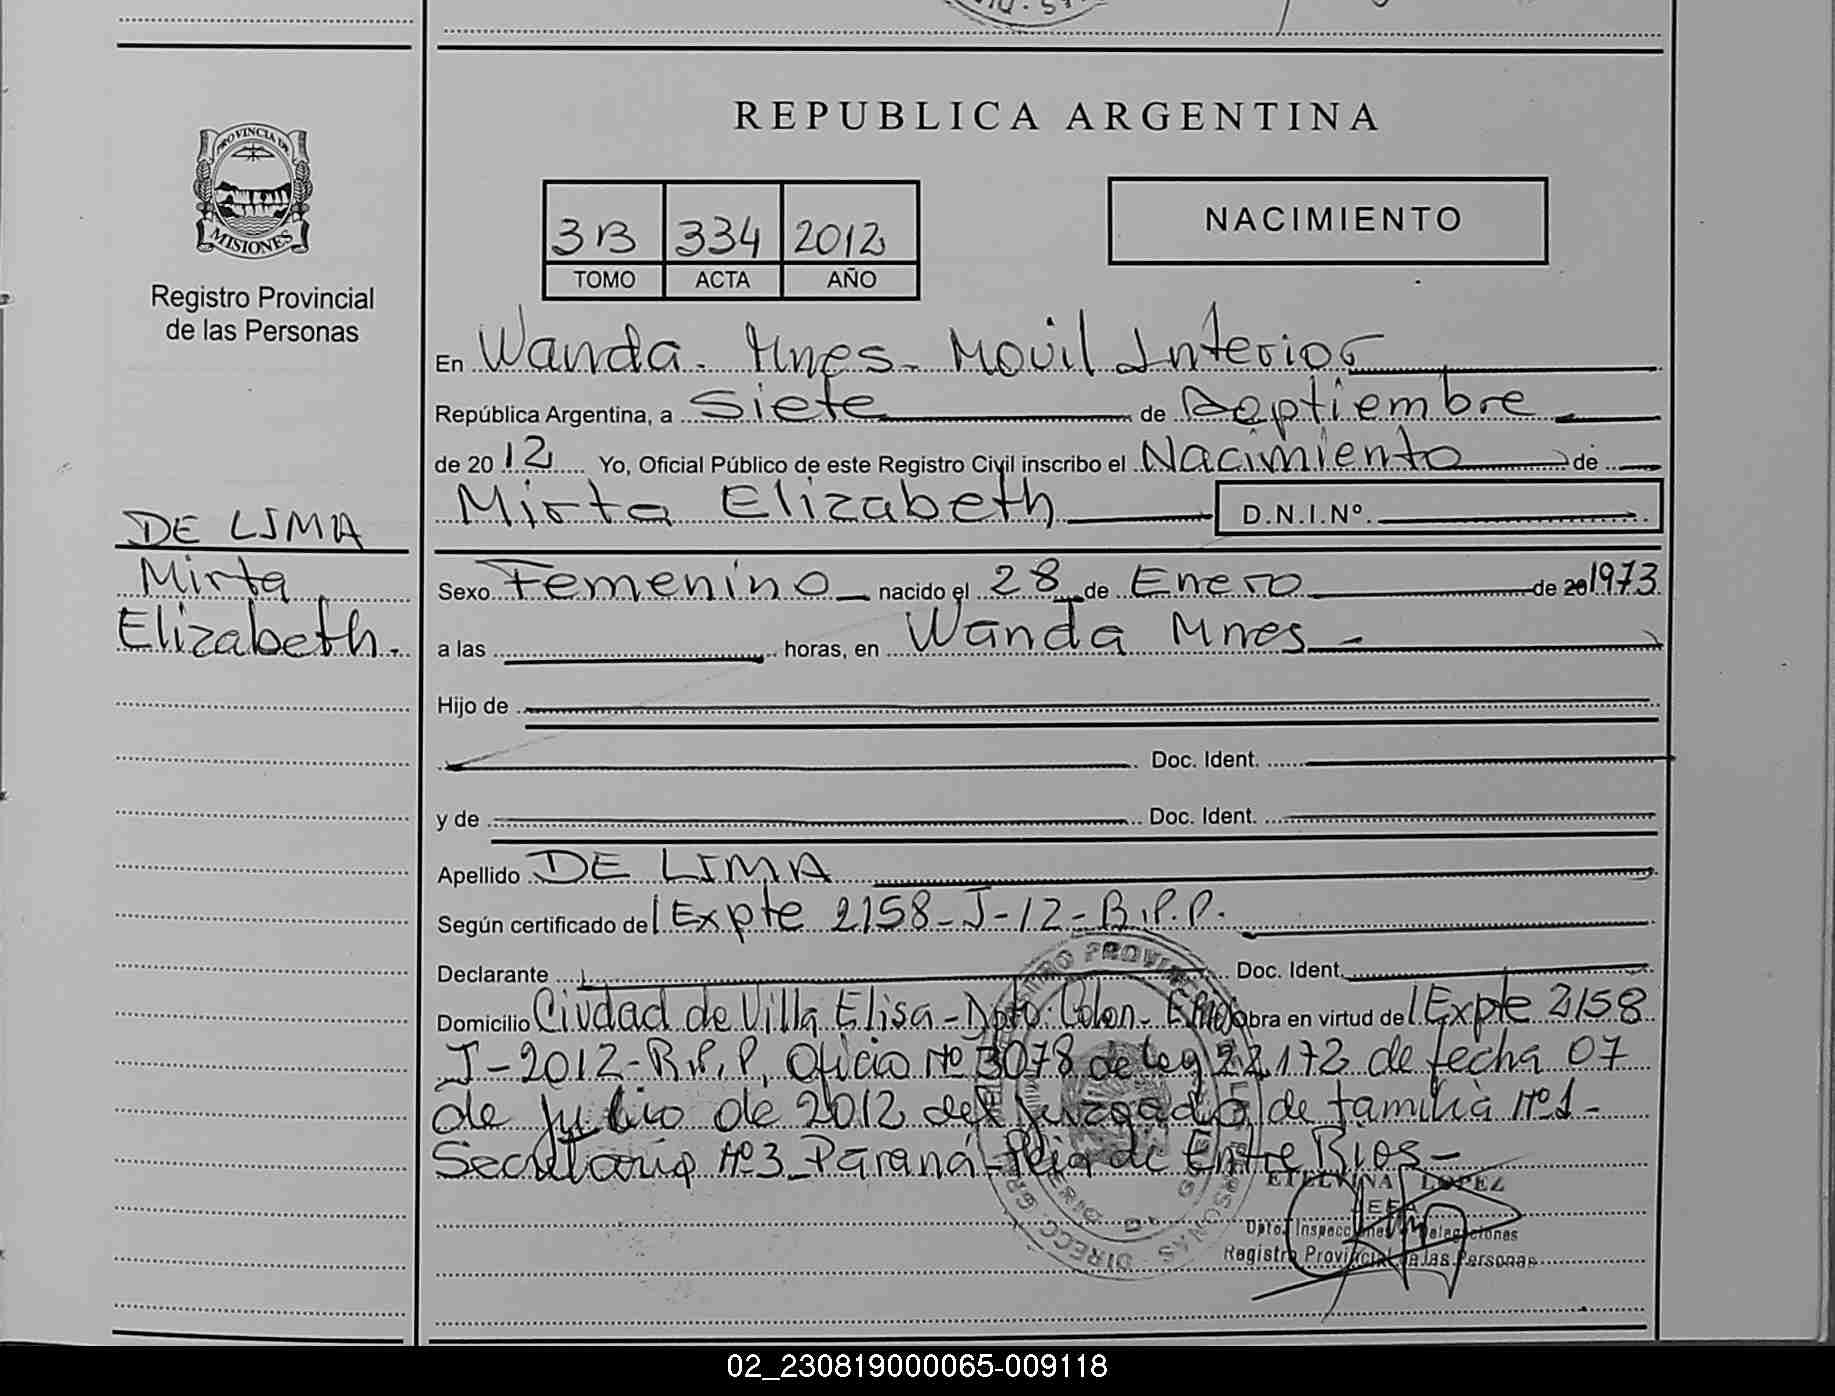 REPUBLICA ARGENTINA
PROVINCIA DE
MISIONES
Registro Provincial
de las Personas
3B 334 2012
TOMO ACTA AÑO
NACIMIENTO
En Wanda. Mnes- Movil Interior
República Argentina, a Siete de Septiembre
de 2012 Yo, Oficial Público de este Registro Civil inscribo el Nacimiento de
Mirta Elizabeth D.N.I.Nº.
DE LIMA
Mirta
Elizabeth.
Sexo Femenino nacido el 28 de Enero de 20 1973
a las horas, en Wanda Mnes -
Hijo de
Doc. Ident.
y de Doc. Ident.
Apellido DE LIMA
Según certificado del Expte 2158-J-12-R.P.P.
Declarante Doc. Ident.
Domicilio Ciudad de Villa Elisa-Dpto. Colon- obra en virtud del Expte 2158
J-2012-R.P.P, Oficio Nº 3078 de Ley 22172 de fecha 07
de julio de 2012 del juzgado de familia Nº1-
Secretaria Nº3 Paraná-Pcia de Entre Rios-
ETELVINA LOPEZ
JEFA
Dpto. Inspecciones Delegaciones
Registro Provincial de las Personas
02_230819000065-009118